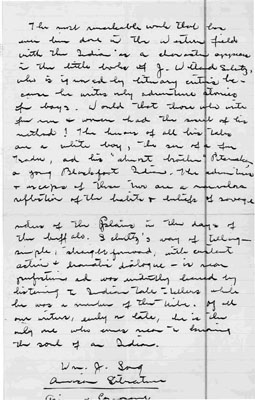 The most remarkable work that has
ever been done in the western field
with the Indian as a character appears
in the little books of J. Willard Schultz,
who is ignored by literary critics be-
cause he writes only adventure stories
for boys. Would that those who write
for men & women had the half of his
method! The heroes of all his tales
are a white boy, the son of a fur
trader, and his "almost brother" Pitamakan,
a young Blackfoot Indian. The adventures
& escapes of these two are a marvelous
reflection of the habits & beliefs of savage
riders of the plains in the days of
the buffalo. Schultz's way of telling -
simple, straightforward, with excellent
action & dramatic dialogue - is near
perfection and was evidently learned by
listening to Indian tale-tellers while
he was a member of the tribe. Of all
our writers, early or late, he is the
only one who comes near to knowing
the soul of an Indian.
Wm. J. Long
American Literature
Ginn & Company